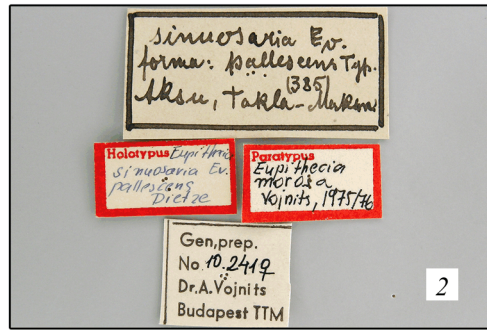 sinuosaria Ev.
forma: pallescens Typ.
(385)
Aksu, Takla-Makan
Holotypus Eupithecia
sinuosaria Ev.
pallescens
Dietze
Paratypus
Eupithecia
morosa
Vojnits, 1975/76
Gen,prep.
No. 10.241♀
Dr.A.Vojnits
Budapest TTM
2